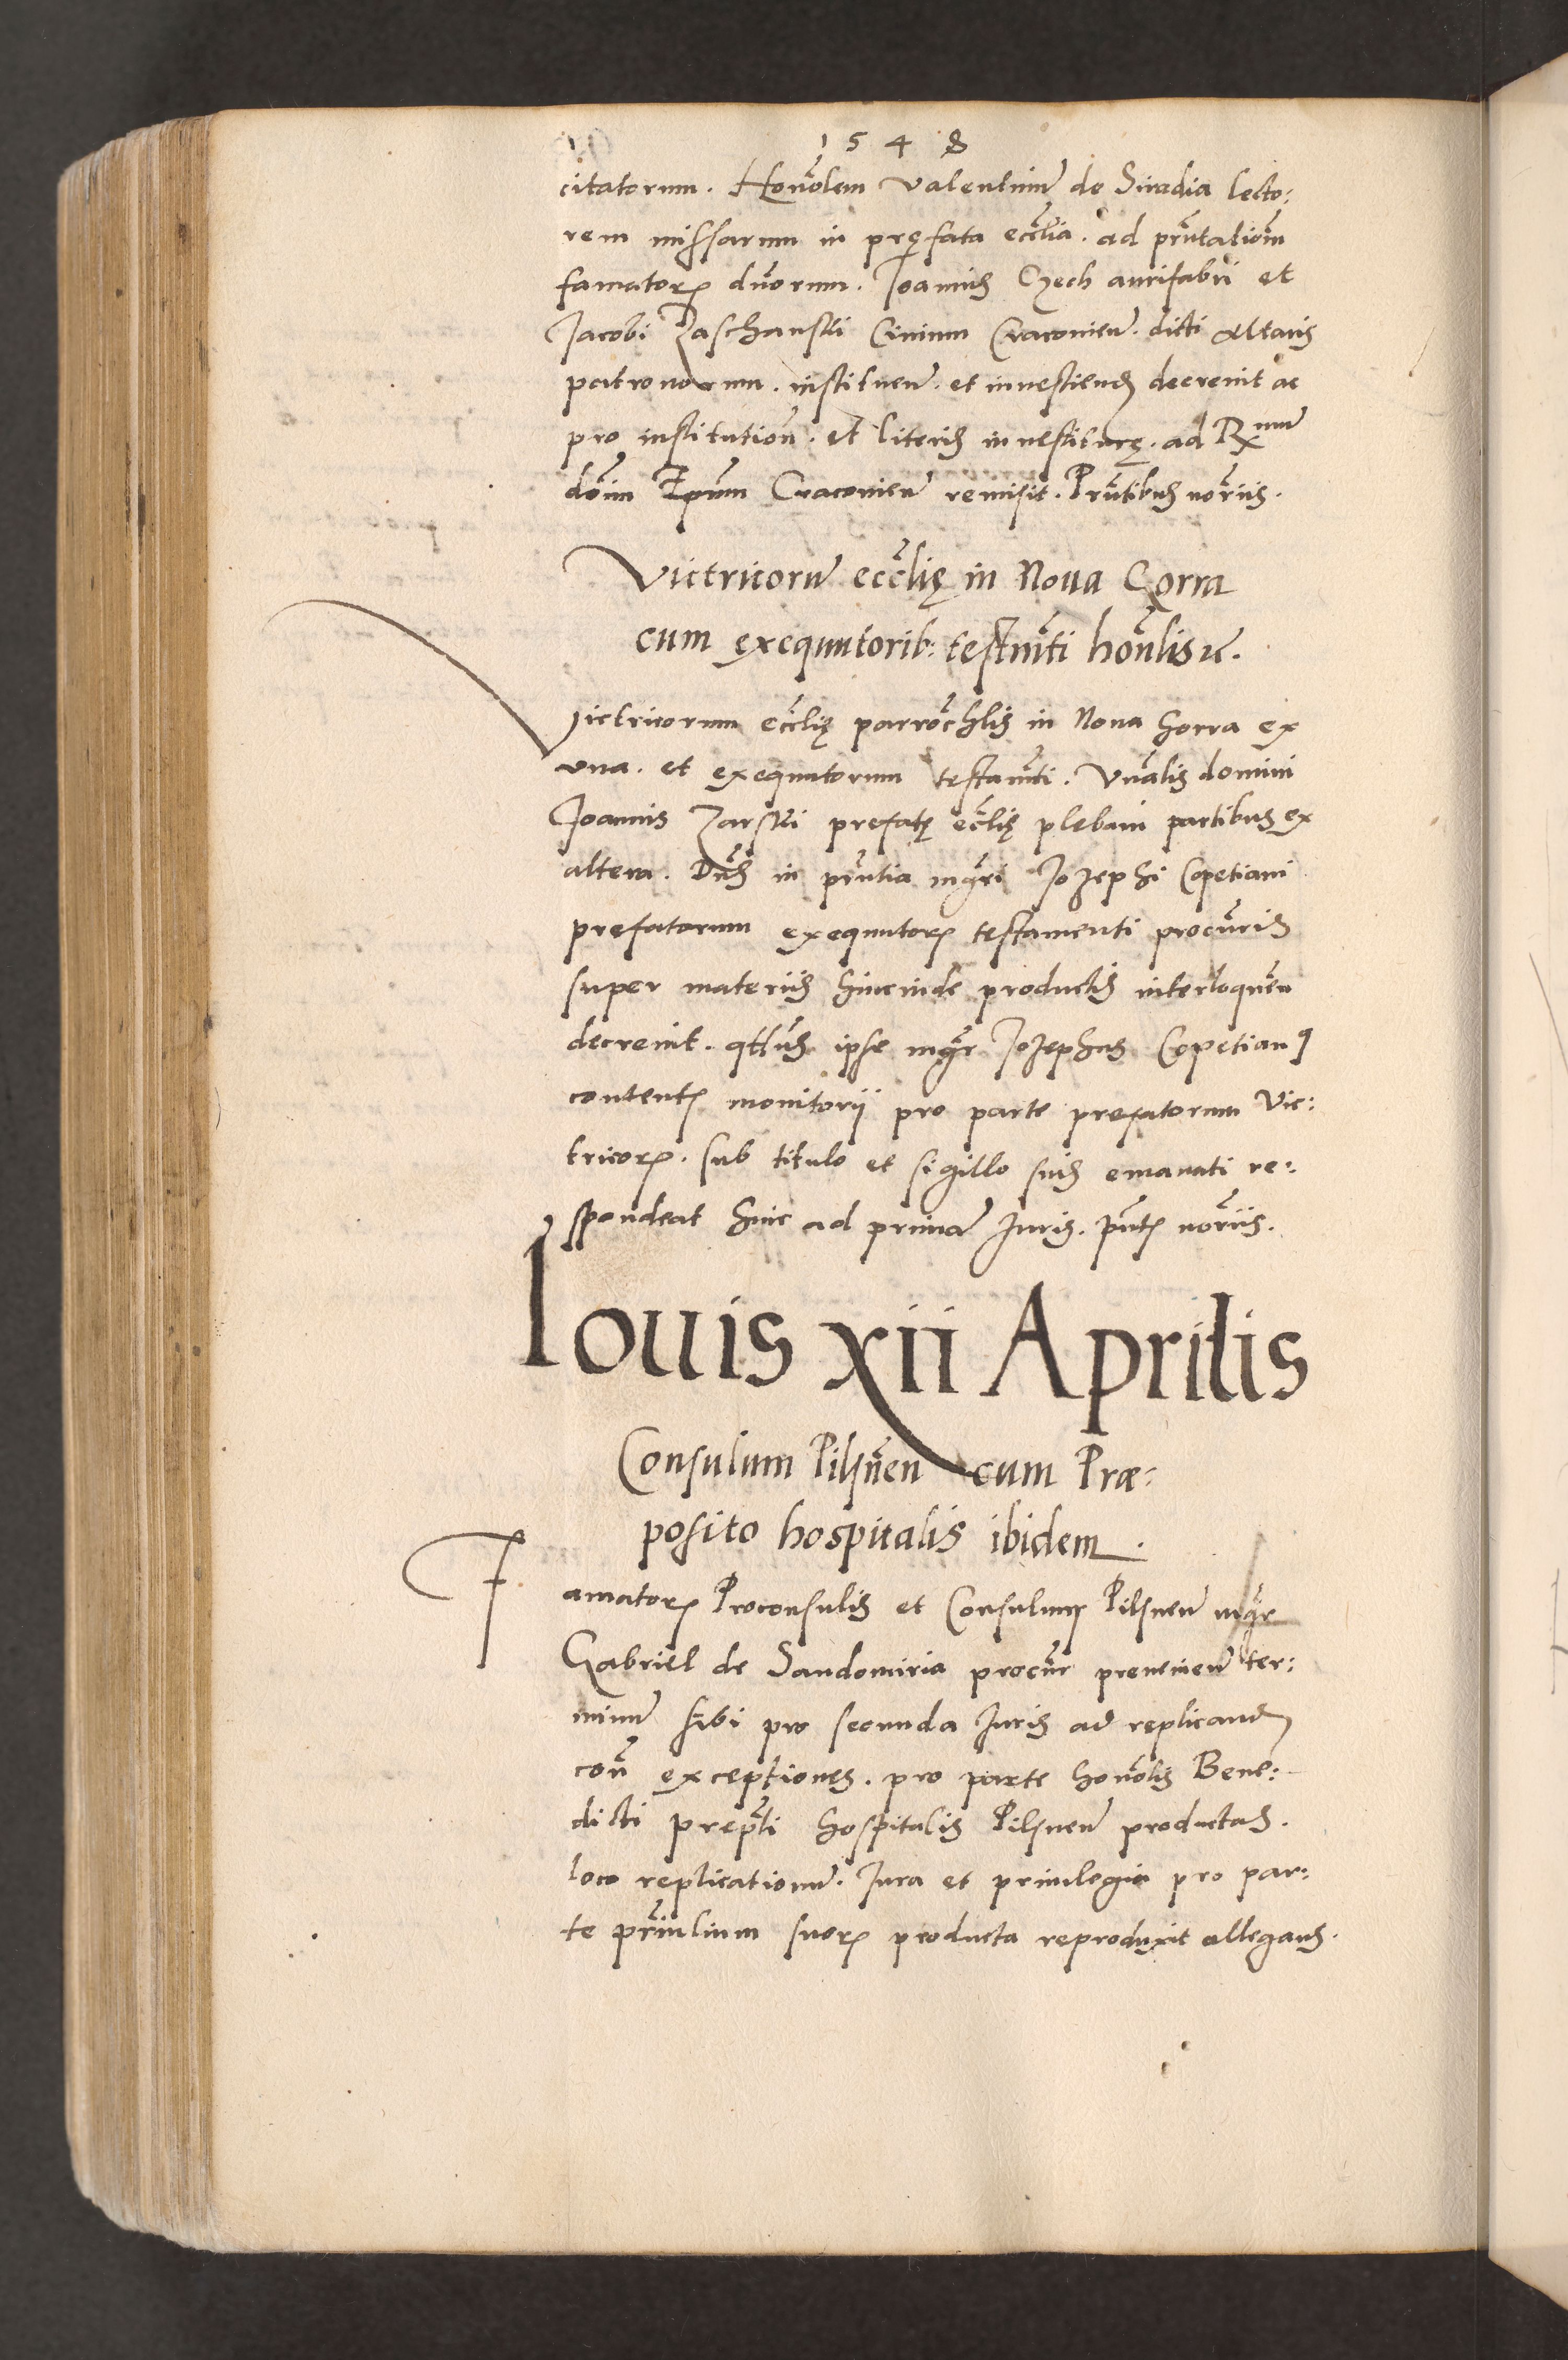 1548
citatorum. Honorabilem Valentinum de Siradia lecto:
rem missarum in pręfata ecclesia. ad prñtationem
famatorum dnorum. Joannis Czech aurifabri et
Jacobi Zaschanski Civium Cracovien. dicti altaris
patronorum. instituen. et investiend decrevit ac
pro institution. et literis investiturę. ad Rmum
dnum Epum Cracovien remisit. Prntibus notariis.
Victricorum ecclię in Noua Gorra
cum exequutorib: testamti honlis etc.
Victricorum ecclię parrochlis in Noua Gorra ex
una. et exequutorum testamti. Venlis domini
Joannis Zarski prefatę ecclię plebani partibus ex
altera. Dns in prntia mgri Jozephi Copetiani
prefatorum exequutorum testamenti procuris
super materiis hincinde productis interloquen
decrevit. qtus ipse mgr Jozephus Copetianus
contentis monitorii pro parte prefatorum Vic:
tricorum. sub titulo et sigillo suis emanati re:
spondeat hinc ad primam Juris. pntibus notariis.
Iouis xii Aprilis
Consulum Pilsnen cum Præ:
posito hospitalis ibidem.
Famatorum Proconsulis et Consulum Pilsnen mgr
Gabriel de Sandomiria procur preveniens ter:
minum sibi pro secunda Juris ad replicand
con exceptiones. pro parte honlis Bene:
dicti prepti hospitalis Pilsnen productas.
loco replicationum. Jura et privilegia pro par:
te principalium suorum producta reproduxit allegans.